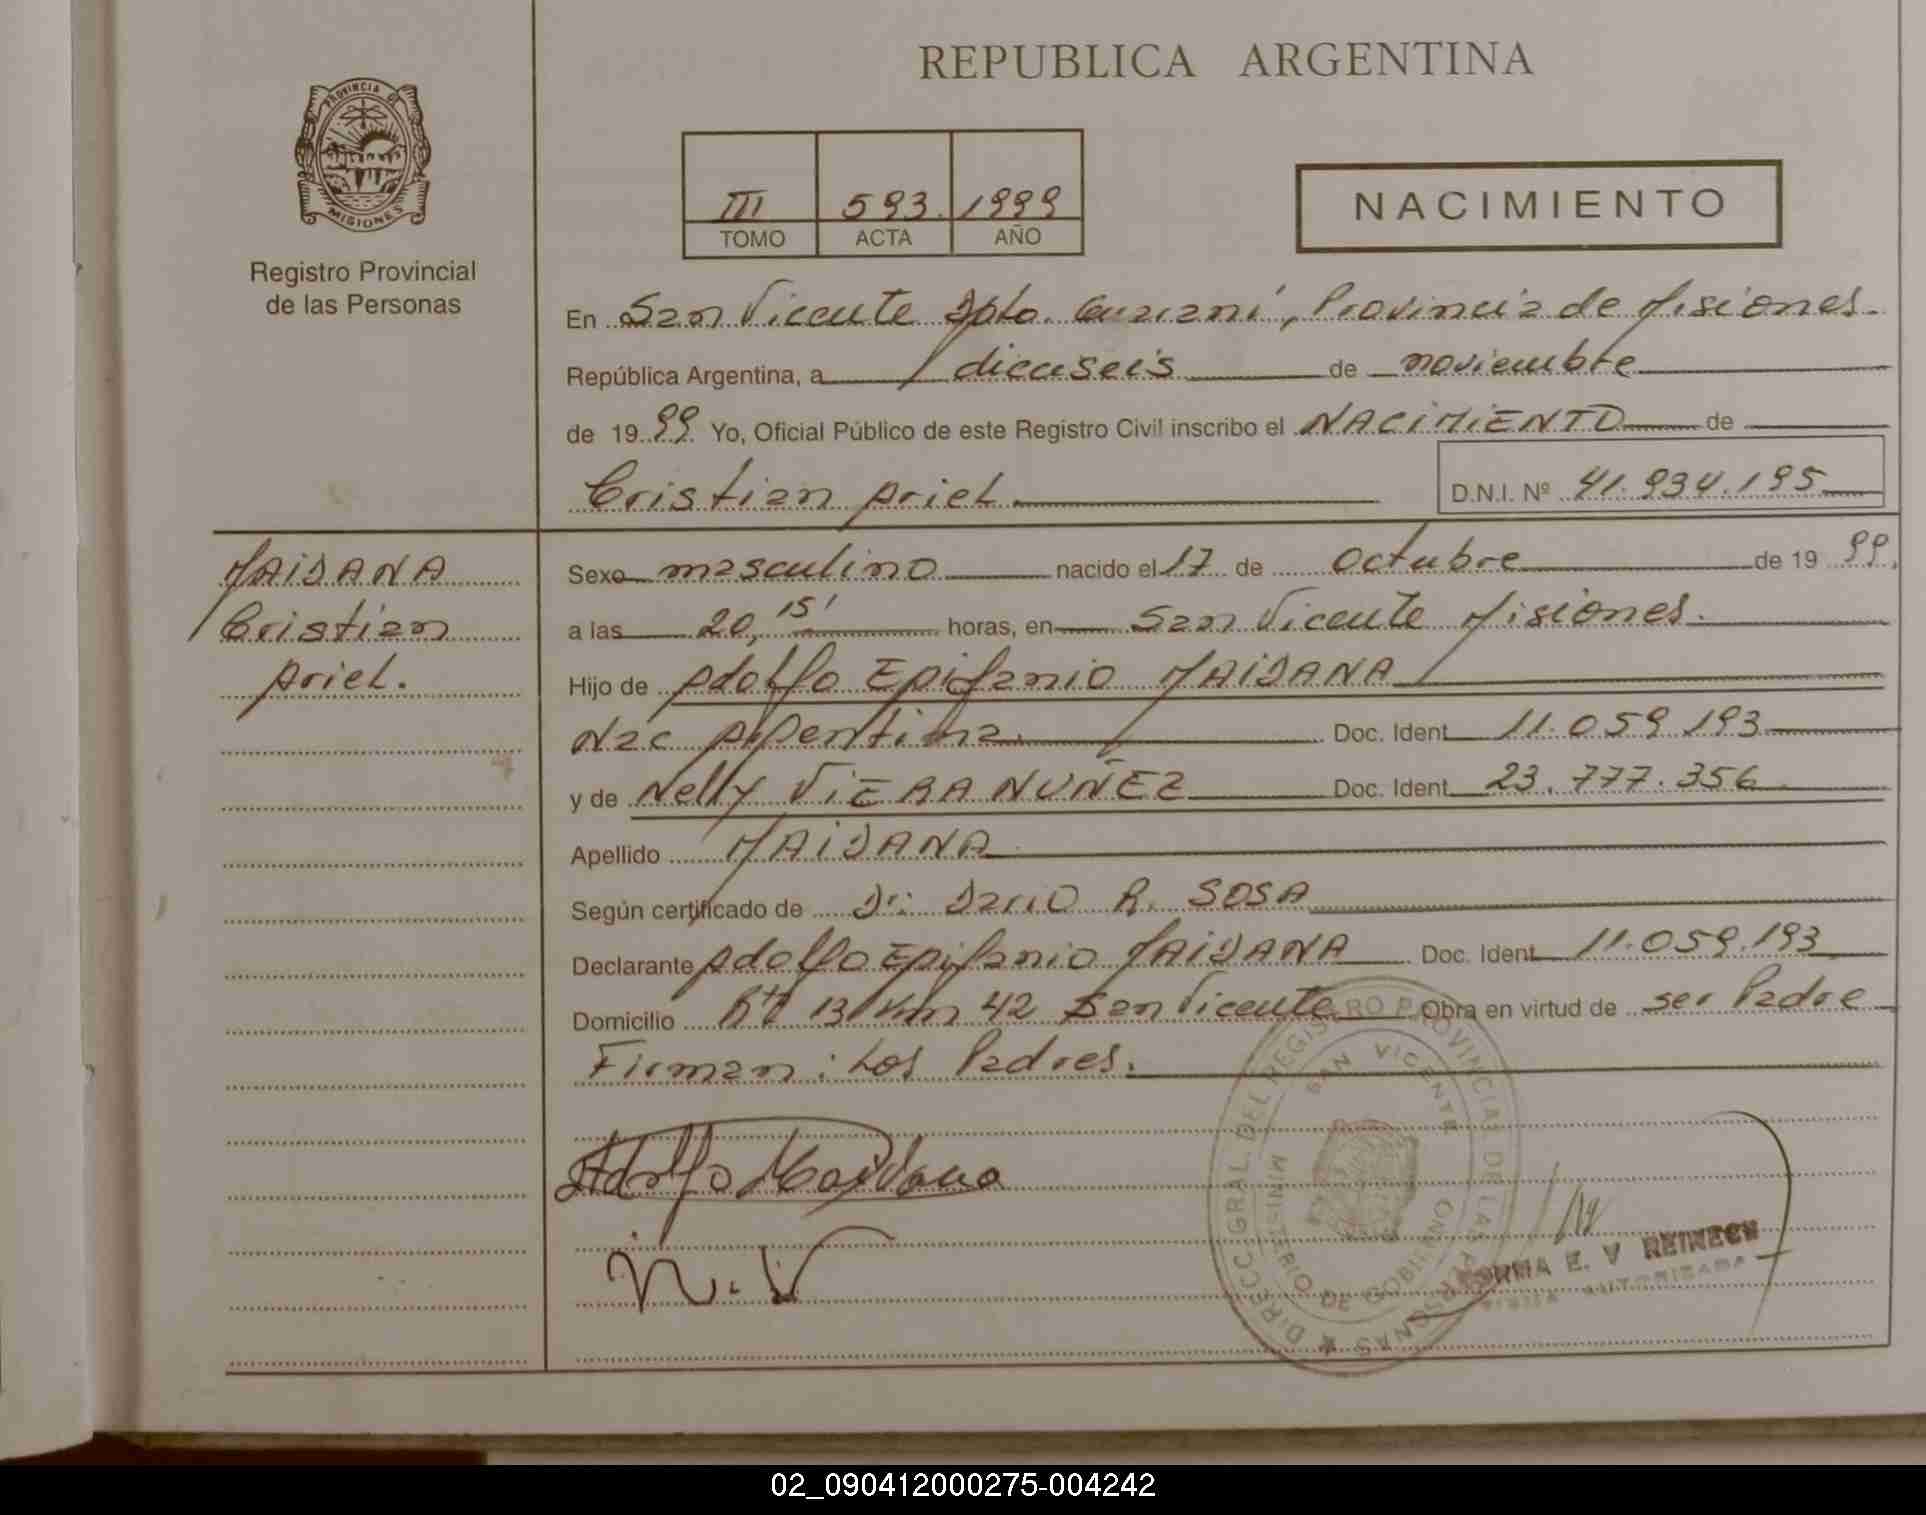 REPUBLICA ARGENTINA
PROVINCIA DE
MISIONES
Registro Provincial
de las Personas
III 593. 1999
TOMO ACTA AÑO
NACIMIENTO
En San Vicente Dpto. Guaraní, Provincia de Misiones.
República Argentina, a dieciseis de noviembre
de 19 99 Yo, Oficial Público de este Registro Civil inscribo el NACIMIENTO de
Cristian Ariel. D.N.I. Nº 41.934.195
MAIDANA
Cristian
Ariel.
Sexo masculino nacido el 17 de Octubre de 19 99.
a las 20,15' horas, en San Vicente Misiones.
Hijo de Adolfo Epifanio MAIDANA
Nac Argentina. Doc. Ident 11.059.193
y de Nelly VIERA NUÑEZ Doc. Ident 23.777.356
Apellido MAIDANA
Según certificado de Dr: Dario R. SOSA
Declarante Adolfo Epifanio MAIDANA Doc. Ident 11.059.193
Domicilio Rta 13 Km 42 San Vicente Obra en virtud de ser Padre
Firman: Los Padres.
Adolfo Maidana
N. V
DIRECC. GRAL. DEL REGISTRO PROVINCIAL DE LAS PERSONAS
SAN VICENTE
MINISTERIO DE GOBIERNO
NORMA E. V REINECK
FIRMA AUTORIZADA
02_090412000275-004242